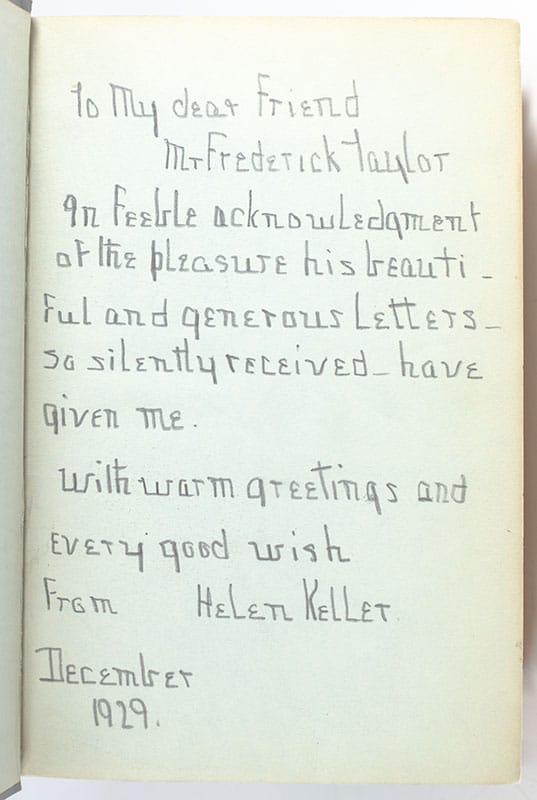 To My dear Friend
Mr Frederick Taylor
In feeble acknowledgment
of the pleasure his beauti-
ful and generous letters-
so silently received-have
given me.
With warm greetings and
every good wish
From Helen Keller.
December
1929.